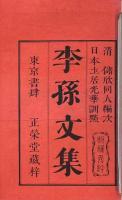 清 儲欣同人編次
日本 土居光華訓點
李孫文集
東京書肆 正榮堂藏梓